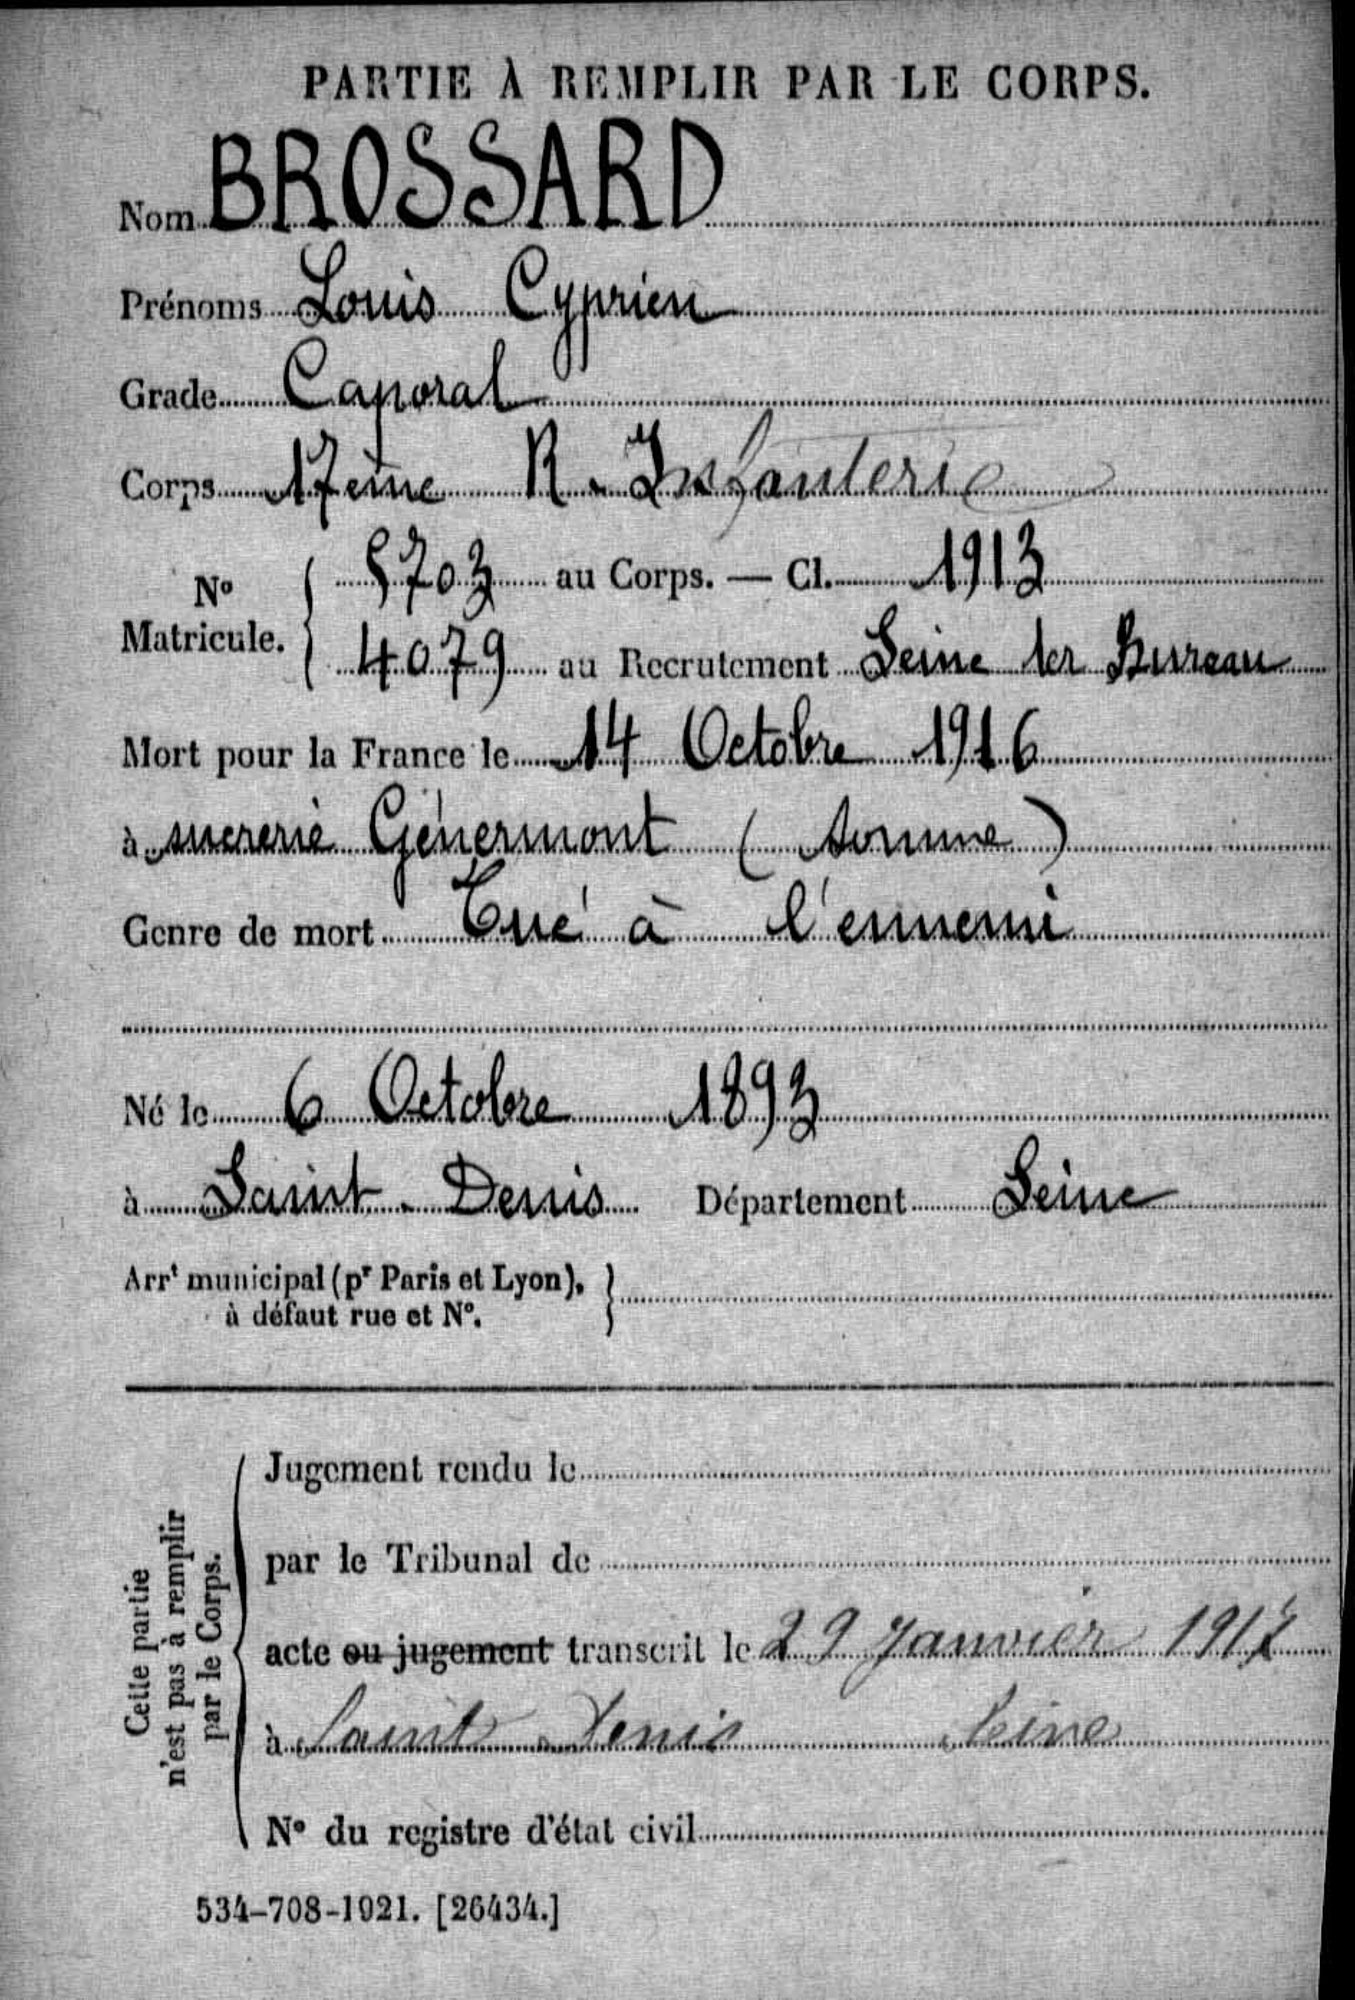 PARTIE À REMPLIR PAR LE CORPS.
Nom BROSSARD
Prénoms Louis Cyprien
Grade Caporal
Corps 17ème R. Infanterie
No Matricule. { 5703 au Corps. — Cl. 1913
4079 au Recrutement Seine 1er Bureau
Mort pour la France le 14 Octobre 1916
à sucrerie Génermont (Somme)
Genre de mort Tué à l'ennemi
Né le 6 Octobre 1893
à Saint-Denis Département Seine
Arrt municipal (pr Paris et Lyon), }
à défaut rue et N°.
Cette partie
n'est pas à remplir
par le Corps.
Jugement rendu le
par le Tribunal de
acte ou jugement transcrit le 29 Janvier 1917
à Saint-Denis Seine
N° du registre d'état civil
534-708-1921. [26434.]